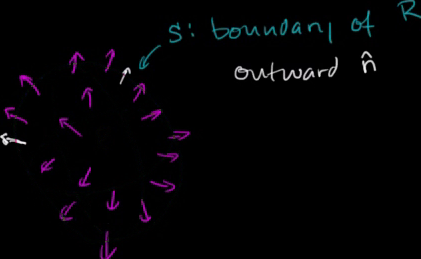 S: boundary of R
outward n̂